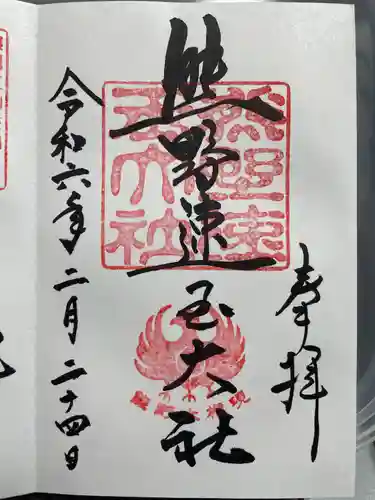 奉拝
熊野速玉大社
令和六年二月二十四日
熊野速玉大社